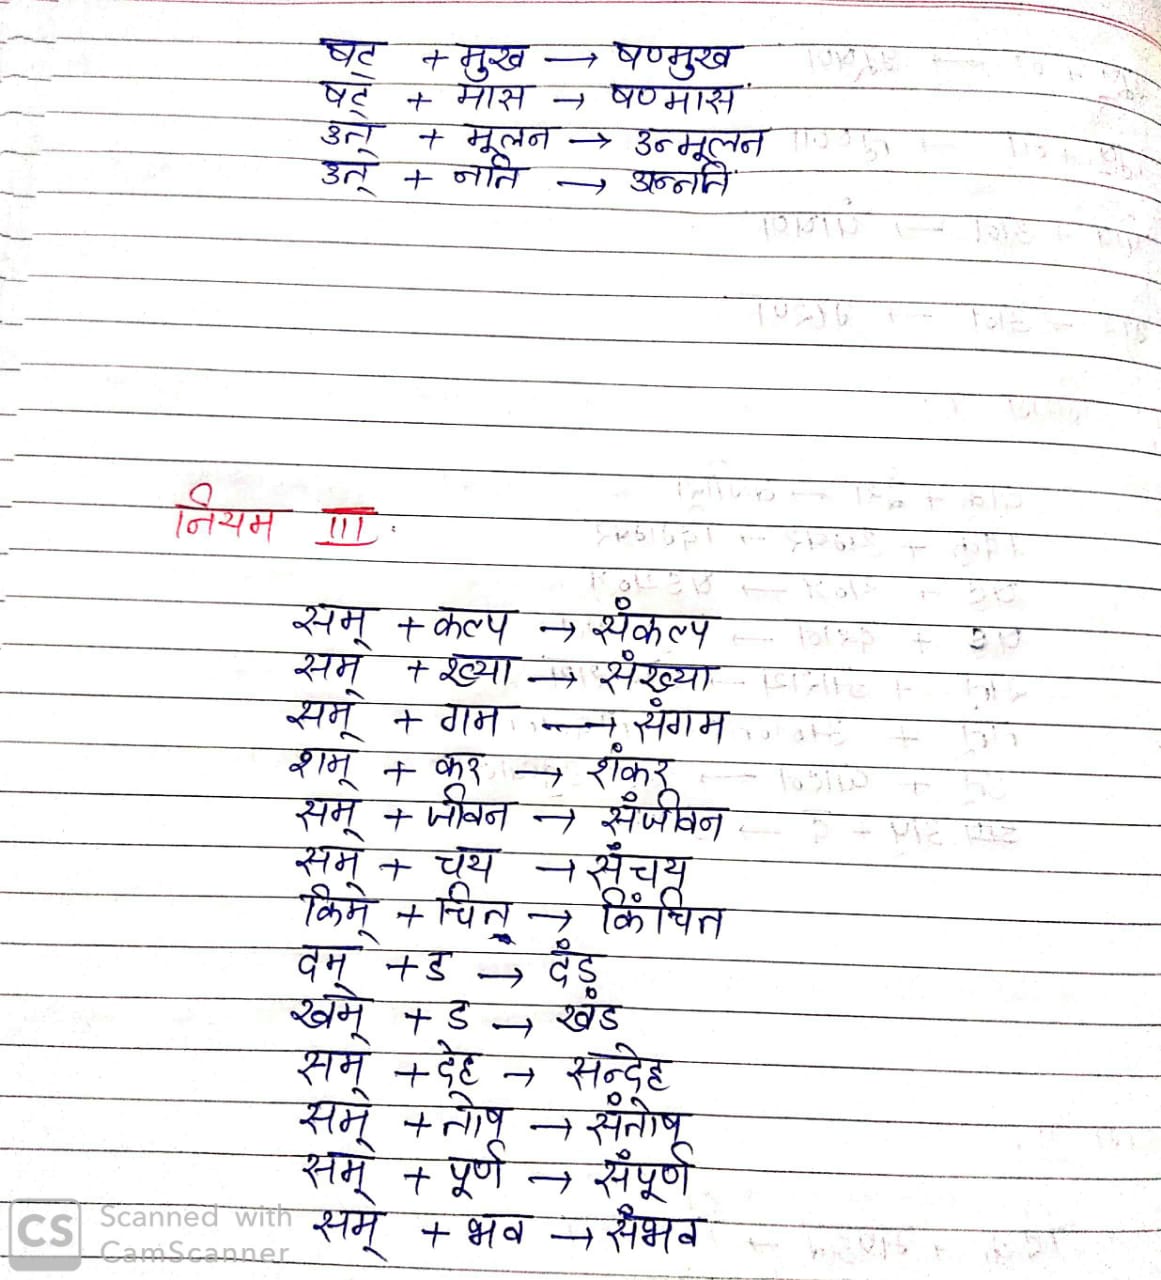 षट् + मुख → षण्मुख
षट् + मास → षण्मास
उत् + मूलन → उन्मूलन
उत् + नति → उन्नति
नियम III.
सम् + कल्प → संकल्प
सम् + ख्या → संख्या
सम् + गम → संगम
शम् + कर → शंकर
सम् + जीवन → संजीवन
सम् + चय → संचय
किम् + चित् → किंचित
दम् + ड → दंड
खम् + ड → खंड
सम् + देह → सन्देह
सम् + तोष → संतोष
सम् + पूर्ण → संपूर्ण
सम् + भव → संभव
CS Scanned with
CamScanner